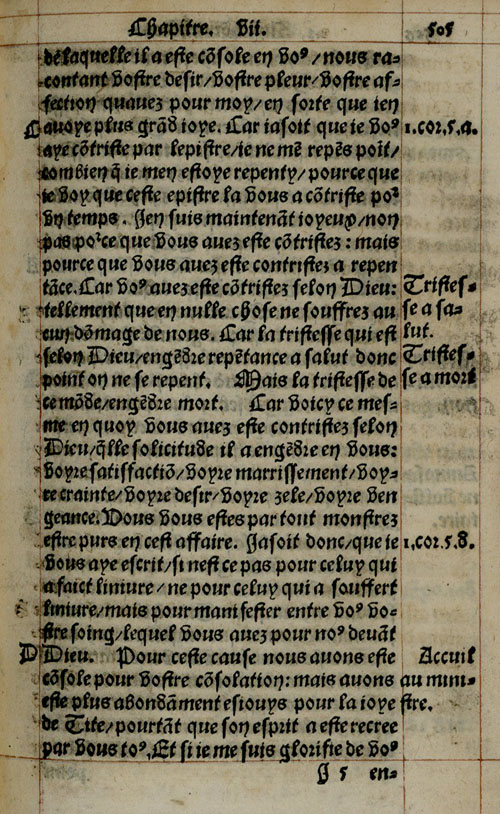 Chapitre. Vii. 505
de laquelle il a este cõsole en voꝰ / nous ra-
contant vostre desir / vostre pleur / vostre af-
fection quauez pour moy / en sorte que ien
C auoye plus grãd ioye. Car iasoit que ie voꝰ 1.cor.5.a.
aye cõtriste par lepistre / ie ne mẽ repẽs poĩt /
combien q̃ ie men estoye repenty / pource que
ie voy que ceste epistre la vous a cõtriste poᷣ
vn temps. Jen suis maintenãt ioyeux / non
pas poᷣce que vous auez este cõtristez : mais
pource que vous auez este contristez a repen
tãce. Car voꝰ auez este cõtristez selon Dieu: Tristes-
tellement que en nulle chose ne souffrez au se a sa-
cun dõmage de nous. Car la tristesse qui est lut.
selon Dieu / engẽdre repẽtance a salut donc Tristes-
point on ne se repent. Mais la tristesse de se a mort
ce mõde / engẽdre mort. Car voicy ce mes-
me en quoy vous auez este contristez selon
Dieu / q̃lle solicitude il a engẽdre en vous:
voyre satisfactiõ / voyre marrissement / voy-
re crainte / voyre desir / voyre zele / voyre ven
geance. Vous vous estes par tout monstrez
estre purs en cest affaire. Jasoit donc / que ie 1.cor.5.8.
vous aye escrit / si nest ce pas pour celuy qui
a faict liniure / ne pour celuy qui a souffert
liniure / mais pour manifester entre voꝰ vo-
stre soing / lequel vous auez pour noꝰ deuãt
D Dieu. Pour ceste cause nous auons este Accuil
cõsole pour vostre cõsolation: mais auons au mini-
este plus abondãment esiouys pour la ioye stre.
de Tite / pourtãt que son esprit a este recree
par vous toꝰ. Et si ie me suis glorifie de voꝰ
J 5 en-